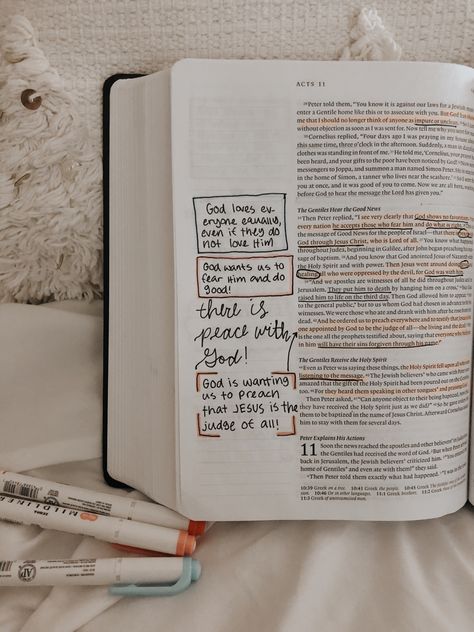 ACTS 11
God loves ev-
eryone equally,
even if they do
not love Him
God wants us to
fear Him and do
good!
there is
peace with
God!
God is wanting
us to preach
that JESUS is the
judge of all!
Peter told them, "You know it is against our laws for a Jewish
enter a Gentile home like this or to associate with you. But God has
me that I should no longer think of anyone as impure or unclean.
without objection as soon as I was sent for. Now tell me why you
Cornelius replied, "Four days ago I was praying in my house
this same time, three o'clock in the afternoon. Suddenly, a man in
clothes was standing in front of me. He told me, 'Cornelius, your
been heard, and your gifts to the poor have been noticed by God!
messengers to Joppa, and summon a man named Simon Peter. He's
in the home of Simon, a tanner who lives near the seashore.' So I
you at once, and it was good of you to come. Now we are all here,
before God to hear the message the Lord has given you."
The Gentiles Hear the Good News
Then Peter replied, "I see very clearly that God shows no favoritism.
every nation he accepts those who fear him and do what is right.
the message of Good News for the people of Israel—that there is
God through Jesus Christ, who is Lord of all. You know what
throughout Judea, beginning in Galilee, after John began preaching
sage of baptism. And you know that God anointed Jesus of Nazareth
the Holy Spirit and with power. Then Jesus went around doing
healing all who were oppressed by the devil, for God was with him.
"And we apostles are witnesses of all he did throughout Judea
Jerusalem. They put him to death by hanging him on a cross, but
raised him to life on the third day. Then God allowed him to appear
to the general public, but to us whom God had chosen in advance
witnesses. We were those who ate and drank with him after he rose
dead. And he ordered us to preach everywhere and to testify that Jesus
one appointed by God to be the judge of all—the living and the dead
is the one all the prophets testified about, saying that everyone who
in him will have their sins forgiven through his name."
The Gentiles Receive the Holy Spirit
Even as Peter was saying these things, the Holy Spirit fell upon all
listening to the message. The Jewish believers who came with Peter
amazed that the gift of the Holy Spirit had been poured out on the
too. For they heard them speaking in other tongues and praising
Then Peter asked, "Can anyone object to their being baptized, now
they have received the Holy Spirit just as we did?" So he gave orders
them to be baptized in the name of Jesus Christ. Afterward Cornelius
him to stay with them for several days.
Peter Explains His Actions
11 Soon the news reached the apostles and other believers in
had received the word of God. But when Peter
back in Jerusalem, the Jewish believers criticized him. "You
home of Gentiles and even ate with them!" they said.
Then Peter told them exactly what had happened.
MILDLINER